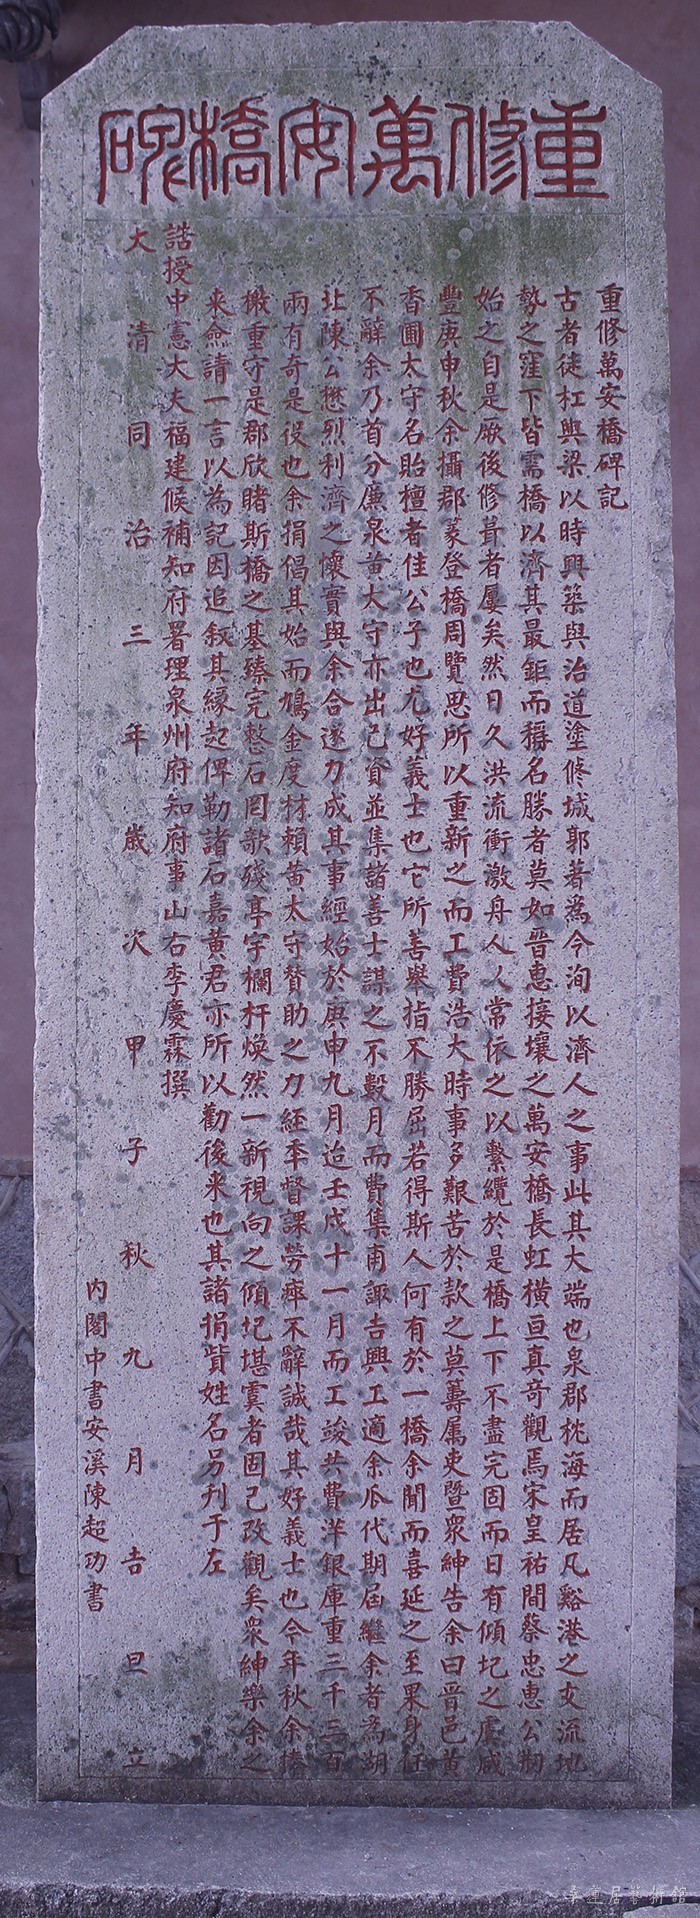 重修萬安橋碑
重修萬安橋碑記
古者徒杠與梁以時興築與治道塗修城郭著為令洵以濟人之事此其大端也泉郡枕海而居凡谿港之支流地
勢之窪下皆需橋以濟其最鉅而稱名勝者莫如晉惠接壤之萬安橋長虹橫亘真奇觀焉宋皇祐間蔡忠惠公刱
始之自是厥後修葺者屢矣然日久洪流衝激舟人人常依之以繫纜於是橋上下不盡完固而日有傾圮之虞咸
豐庚申秋余攝郡篆登橋周覽思所以重新之而工費浩大時事多艱苦於款之莫籌属吏暨眾紳告余曰晉邑黃
香圃太守名貽檀者佳公子也尤好義士也它所善舉指不勝屈若得斯人何有於一橋余聞而喜延之至果身任
不辭余乃首分廉泉黃太守亦出己資並集諸善士謀之不數月而費集甫諏吉興工適余瓜代期屆繼余者為湖
北陳公懋烈利濟之懷實與余合遂力成其事經始於庚申九月迄壬戌十一月而工竣共費洋銀庫重三千三百
兩有奇是役也余捐倡其始而鳩金度材賴黃太守贊助之力経年督課勞瘁不辭誠哉其好義士也今年秋余捧
檄重守是郡欣睹斯橋之基臻完整石罔欹殘亭宇欄杆煥然一新視向之傾圮堪虞者固已改觀矣眾紳樂余之
来僉請一言以為記因追叙其緣起俾勒諸石嘉黃君亦所以勸後来也其諸捐貲姓名另刊于左
誥授中憲大夫福建候補知府署理泉州府知府事山右李慶霖撰
大清同治三年歲次甲子秋九月吉旦立
內閣中書安溪陳超功書